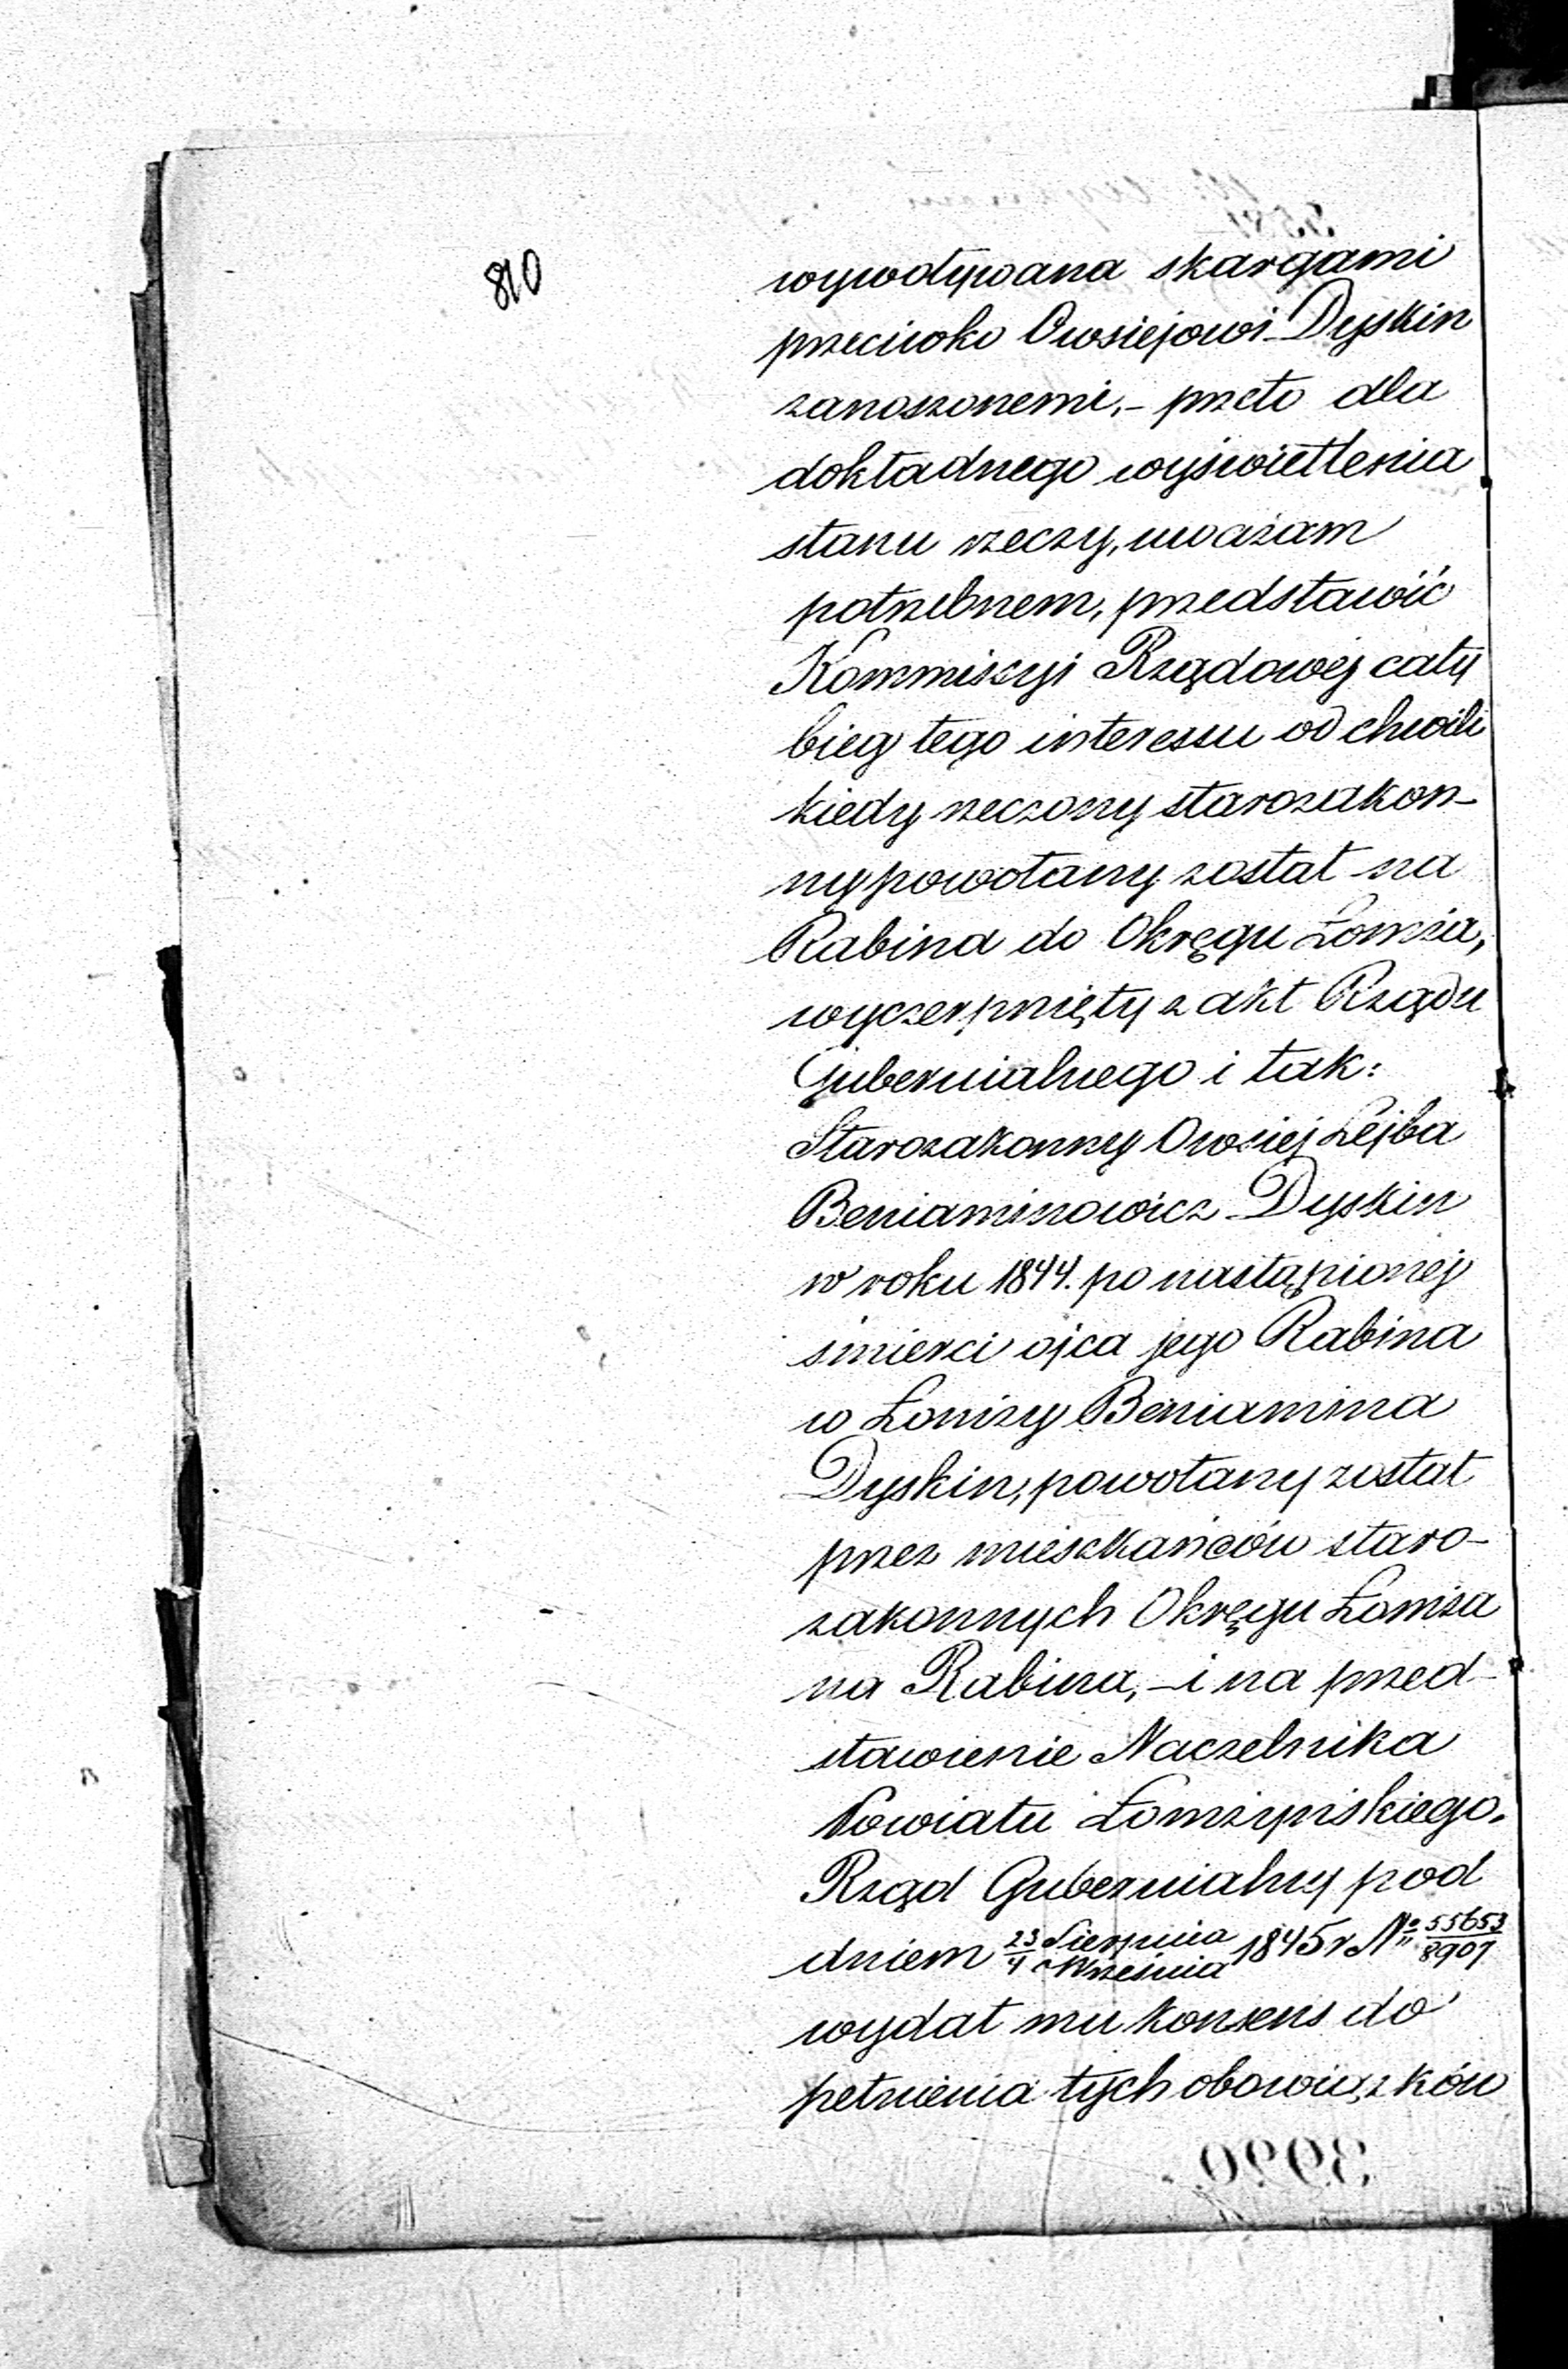 810
wywoływana skargami
przeciwko Owsiejowi Dyskin
zanoszonemi, – przeto dla
dokładnego wyświetlenia
stanu rzeczy, uważam
potrzebnem, przedstawić
Kommissyi Rządowej cały
bieg tego interessu od chwili
kiedy rzeczony starozakon-
ny powołany został na
Rabina do Okręgu Łomża,
wyczerpnięty z akt Rządu
Gubernialnego i tak:
Starozakonny Owsiej Lejba
Beniaminowicz Dyskin
w roku 1844. po nastąpionej
śmierci ojca jego Rabina
w Łomży Beniamina
Dyskin, powołany został
przez mieszkańców staro-
zakonnych Okręgu Łomża
na Rabina, – i na przed-
stawienie Naczelnika
Powiatu Łomżyńskiego.
Rząd Gubernialny pod
dniem 23/4 Sierpnia/Września 1845 r No 55653/8907
wydał mu konsens do
pełnienia tych obowiązków
3990